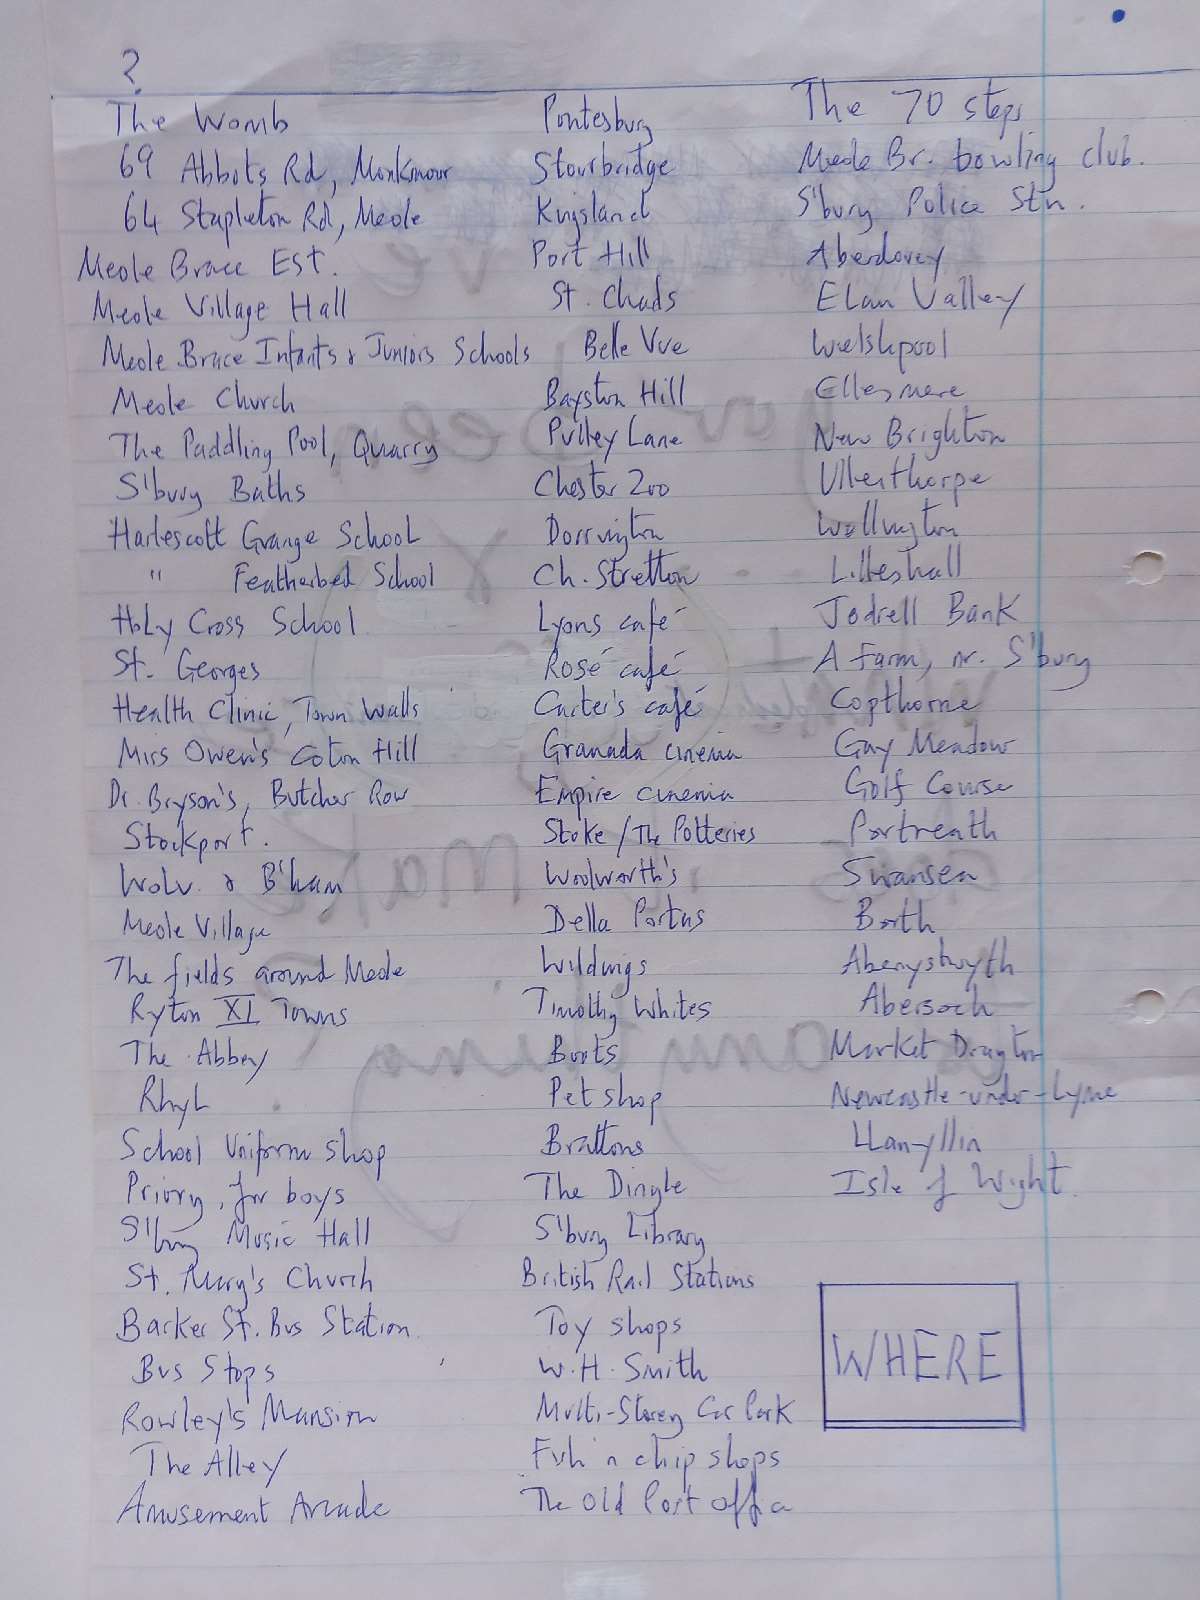 ?
The Womb
69 Abbots Rd, Monkmoor
64 Stapleton Rd, Meole
Meole Brace Est.
Meole Village Hall
Meole Brace Infants & Juniors Schools
Meole Church
The Paddling Pool, Quarry
S'bury Baths
Harlescott Grange School
" Featherbed School
Holy Cross School
St. Georges
Health Clinic, Town Walls
Miss Owen's Coton Hill
Dr. Bryson's, Butcher Row
Stockport.
Wolv. & B'ham
Meole Village
The fields around Meole
Ryton XI Towns
The Abbey
Rhyl
School Uniform shop
Priory, for boys
S'bury Music Hall
St. Mary's Church
Barker St. Bus Station
Bus Stops
Rowley's Mansion
The Alley
Amusement Arcade
Pontesbury
Stourbridge
Kingsland
Port Hill
St. Chads
Belle Vue
Bayston Hill
Pulley Lane
Chester Zoo
Dorrington
Ch. Stretton
Lyons café
Rosé café
Carter's café
Granada cinema
Empire cinema
Stoke/The Potteries
Woolworth's
Della Portas
Wildings
Timothy Whites
Boots
Pet shop
Brattons
The Dingle
S'bury Library
British Rail Stations
Toy shops
W.H. Smith
Multi-Storey Car Park
Fish n chip shops
The Old Post Office
The 70 steps
Meole Br. bowling club.
S'bury Police Stn.
Aberdovey
Elan Valley
Welshpool
Ellesmere
New Brighton
Ullesthorpe
Wellington
Lilleshall
Jodrell Bank
A farm, nr. S'bury
Copthorne
Gay Meadow
Golf Course
Portreath
Swansea
Borth
Aberystwyth
Abersoch
Market Drayton
Newcastle-under-Lyme
Llanyllin
Isle of Wight.
WHERE